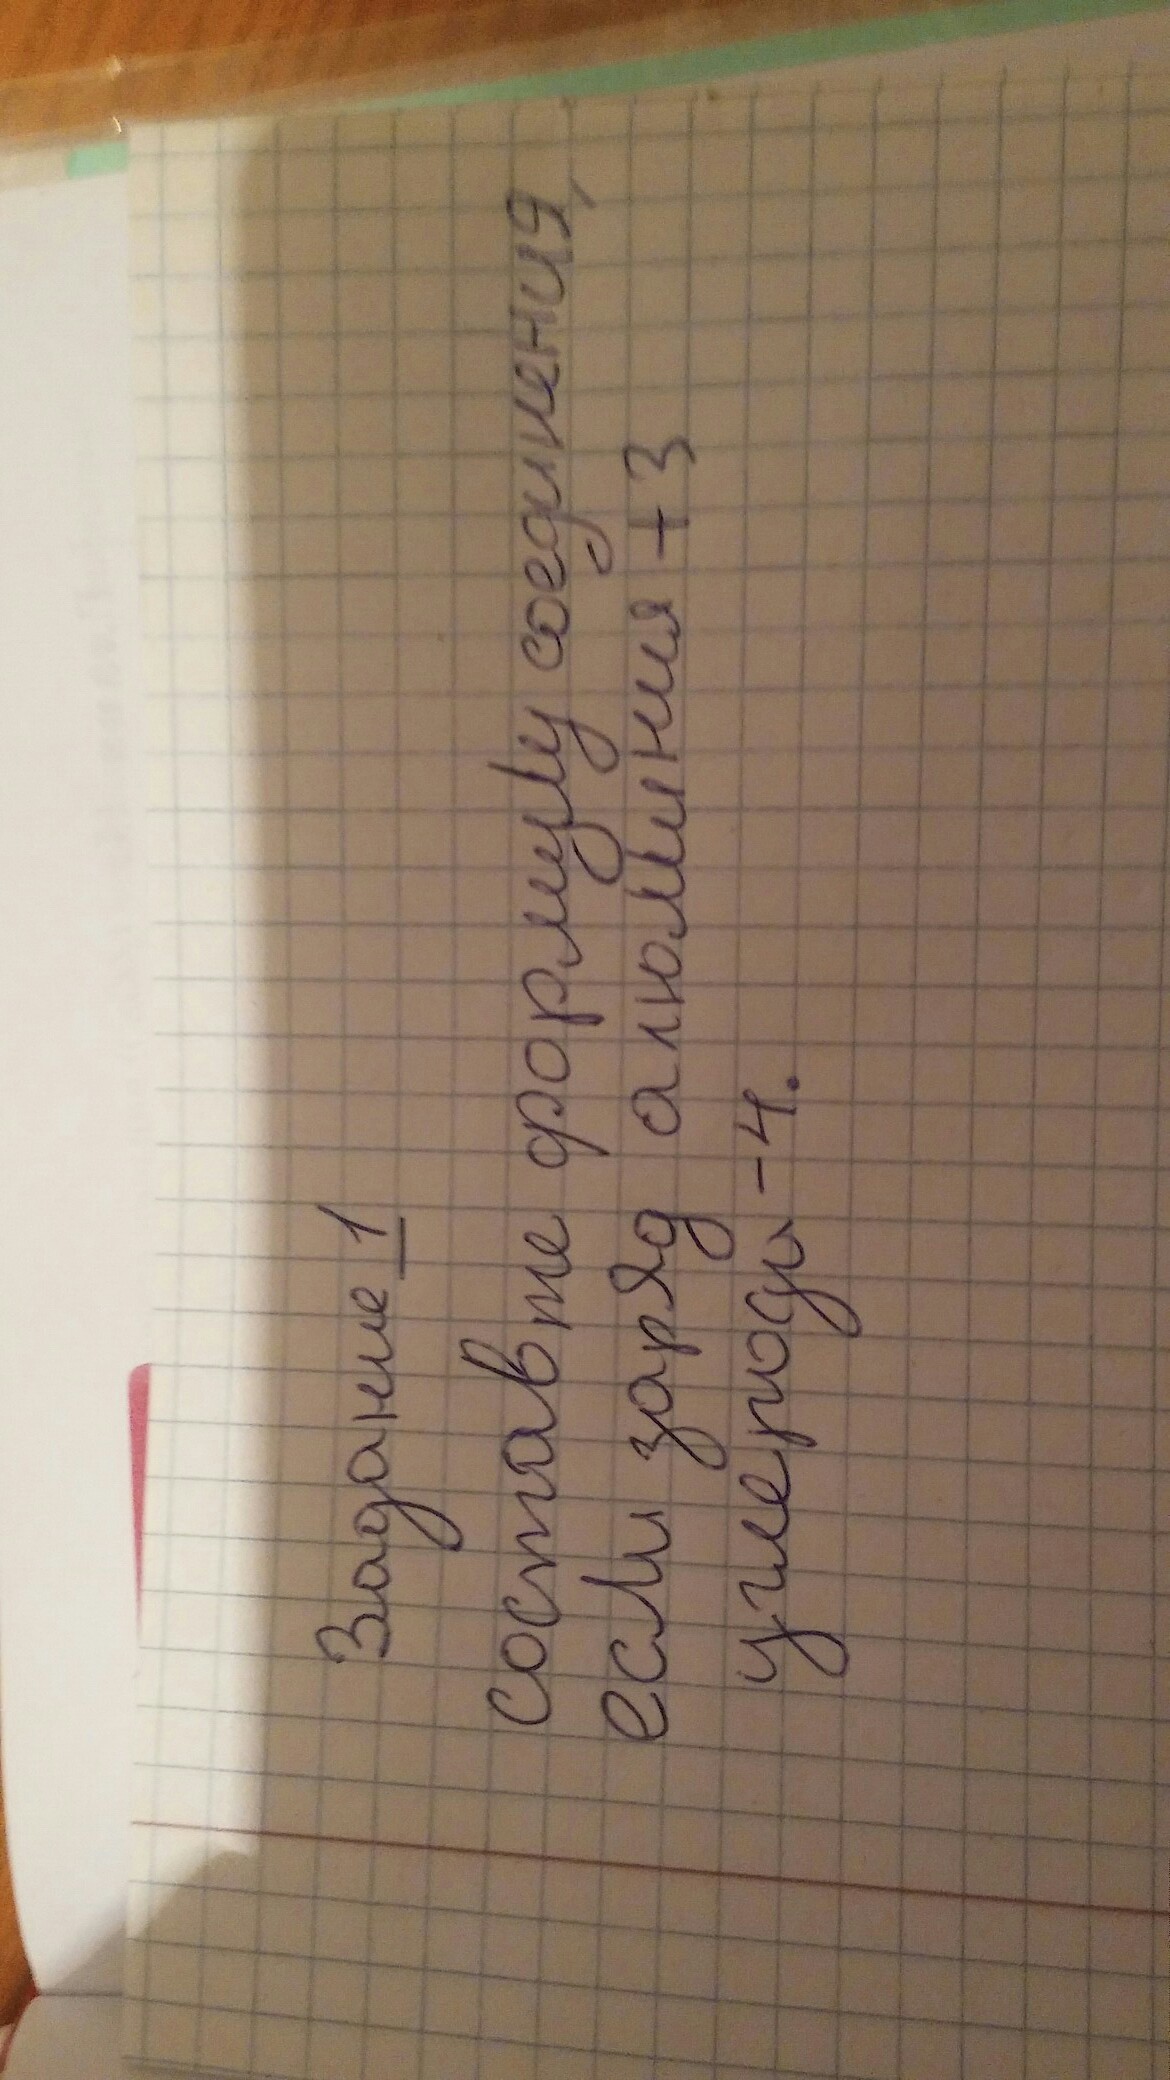 Задание 1
Составте формулу соединения,
если заряд алюминия +3
углерода -4.